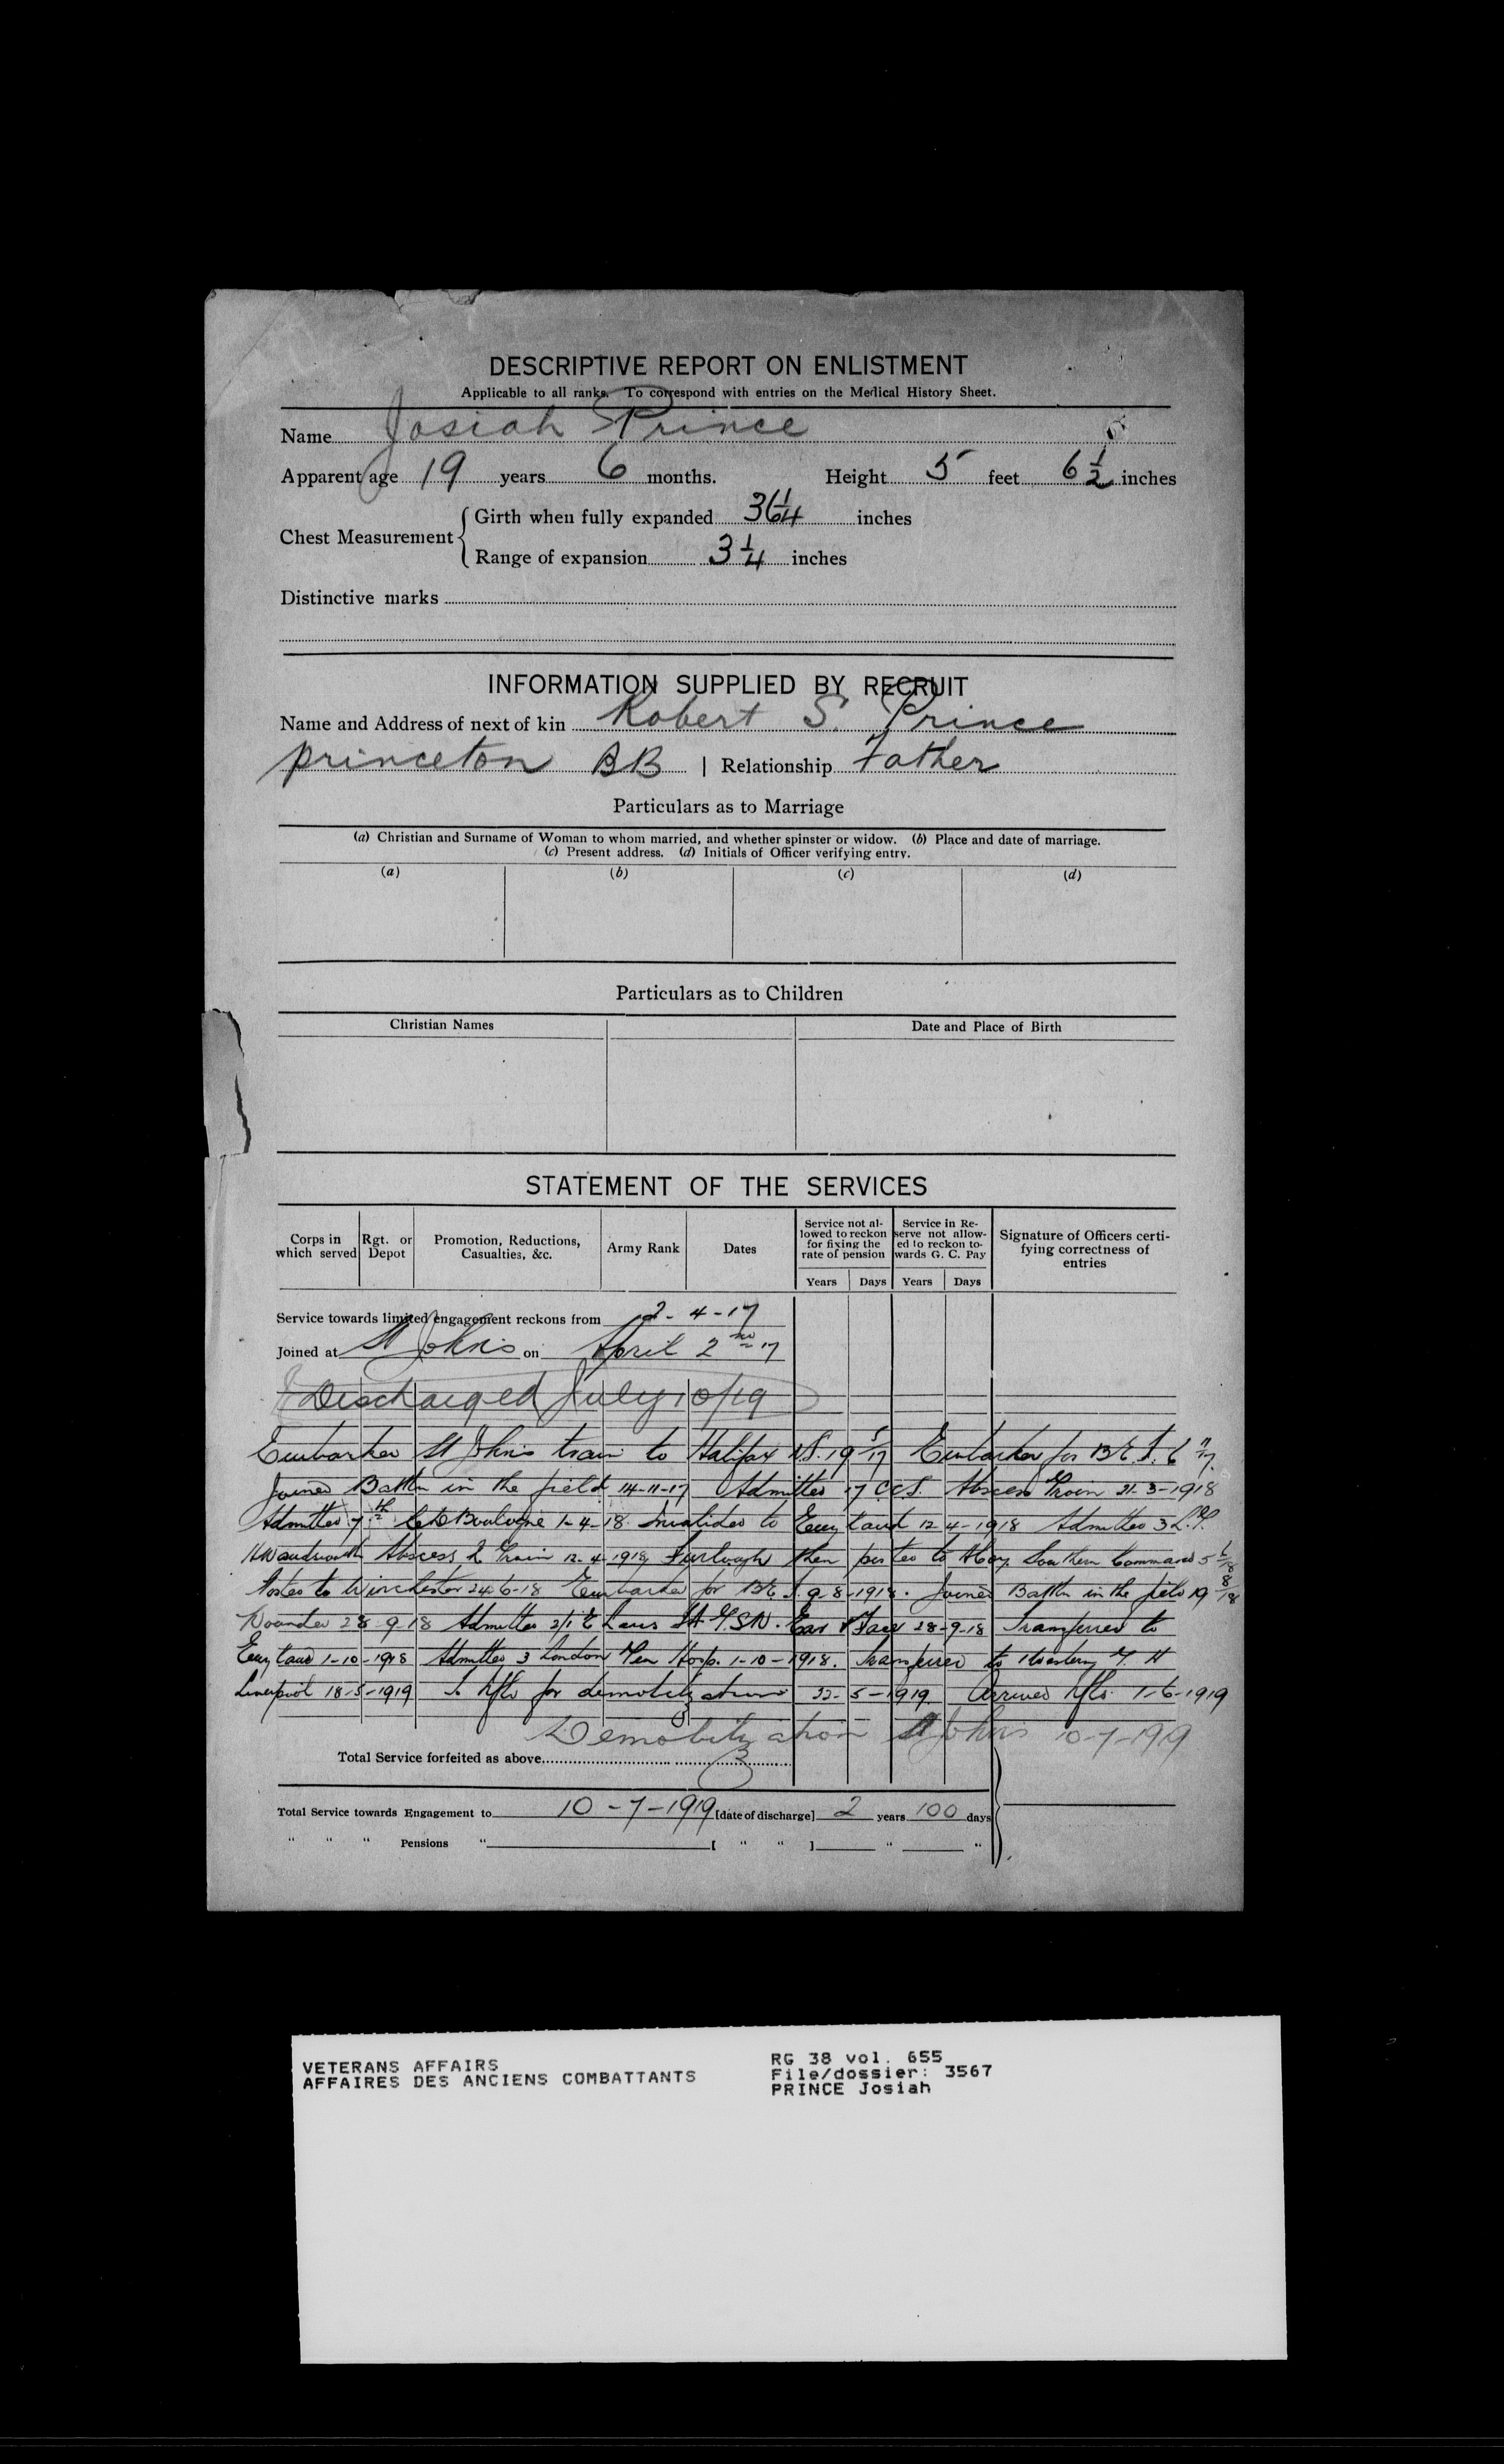 DESCRIPTIVE REPORT ON ENLISTMENT
Applicable to all ranks. To correspond with entries on the Medical History Sheet.
Name Josiah Prince
Apparent age 19 years 6 months. Height 5 feet 6 1/2 inches
Girth when fully expanded 36 1/4 inches
Chest Measurement
Range of expansion 3 1/4 inches
Distinctive marks
INFORMATION SUPPLIED BY RECRUIT
Name and Address of next of kin Robert S. Prince
princeton BB | Relationship Father
Particulars as to Marriage
(a) Christian and Surname of Woman to whom married, and whether spinster or widow. (b) Place and date of marriage.
(c) Present address. (d) Initials of Officer verifying entry.
(a) (b) (c) (d)
Particulars as to Children
Christian Names Date and Place of Birth
STATEMENT OF THE SERVICES
Corps in which served Rgt. or Depot Promotion, Reductions, Casualties, &c. Army Rank Dates Service not allowed to reckon for fixing the rate of pension Service in Reserve not allowed to reckon towards G. C. Pay Signature of Officers certifying correctness of entries
Years Days Years Days
Service towards limited engagement reckons from 2-4-17
Joined at St Johns on April 2nd 17
Discharged July 10/19
Embarked St Johns train to Halifax N.S. 19 5/17 Embarked for B.E.F. 6 11/17
Joined Battn in the field 14-11-17 Admitted 17 CCS. Abscess Groin 31-3-1918
Admitted 7th Boulogne 1-4-18 Invalided to England 12-4-1918 Admitted 3 L.G.
Wandsworth Abscess L Groin 12-4-1918 Furlough then posted to Southern Command 5 6/18
Posted to Winchester 24-6-18 Embarked for B.E.F. 9-8-1918. Joined Battn in the field 19 8/18
Wounded 28-9-18 Admitted 2/1 G.S.W. Ear & Face 28-9-18 Transferred to
England 1-10-1918 Admitted 3 London Gen Hosp. 1-10-1918. Transferred to Western G. H
Liverpool 18-5-1919 To Nfld for demobilization 22-5-1919 Arrived Nfld. 1-6-1919
Demobilization St Johns 10-7-1919
Total Service forfeited as above
Total Service towards Engagement to 10-7-1919 [date of discharge] 2 years 100 days
" " " Pensions " [ " " ] " "
VETERANS AFFAIRS
AFFAIRES DES ANCIENS COMBATTANTS
RG 38 vol. 655
File/dossier: 3567
PRINCE Josiah